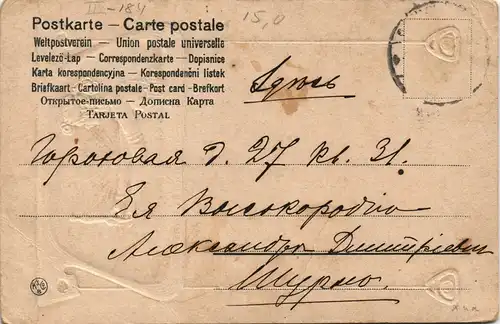 III-184
15,0
Postkarte – Carte postale
Weltpostverein – Union postale universelle
Levelező-Lap – Correspondenzkarte – Dopisnice
Karta korespondencyjna – Korespondenční listek
Briefkaart – Cartolina postale – Post card – Brefkort
Открытое-письмо – Дописна Карта
Tarjeta Postal
Здѣсь
Гороховая д. 27 кв. 31.
Ея Высокородію
Александрѣ Дмитріевнѣ